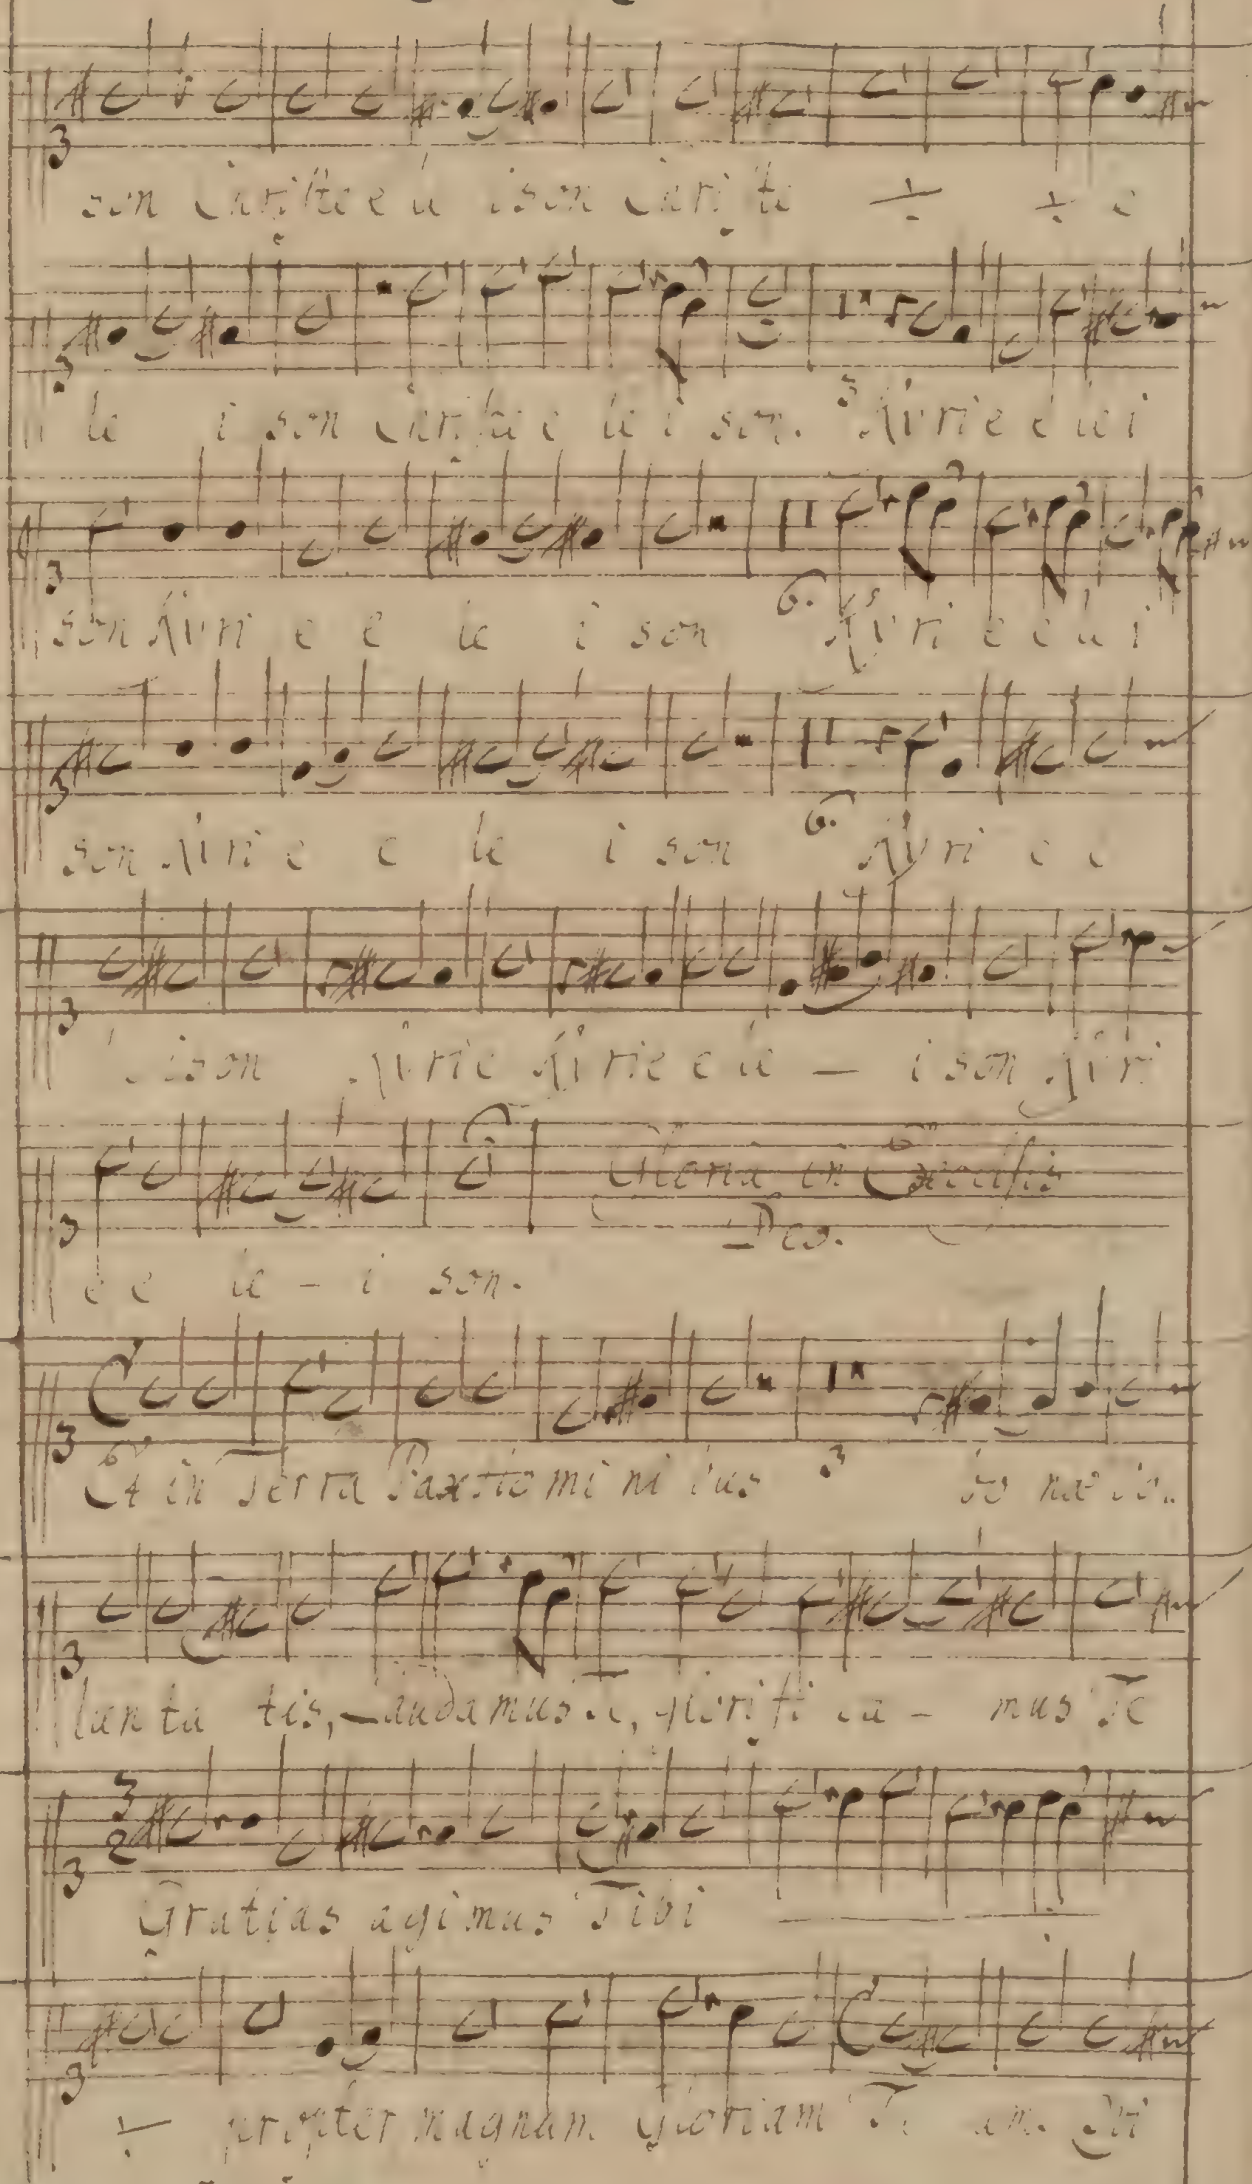 son Christe e le ison Christe ÷ ÷ e
le i son Christe e le i son. 3 Kyrie e le i
son Kyri e e le i son 6. Kyri e e le i
son Kyri e e le i son 6. Kyri e e
le ison Kyrie Kyrie e le — i son Kyri
Gloria in Excelsis
Deo.
e e le - i son.
Et in Terra Pax Ho mi ni bus 3 bo næ vo..
lun ta tis, Laudamus Te, glorifi ca - mus Te
Gratias agimus Tibi
÷ propter magnam gloriam Tu am.